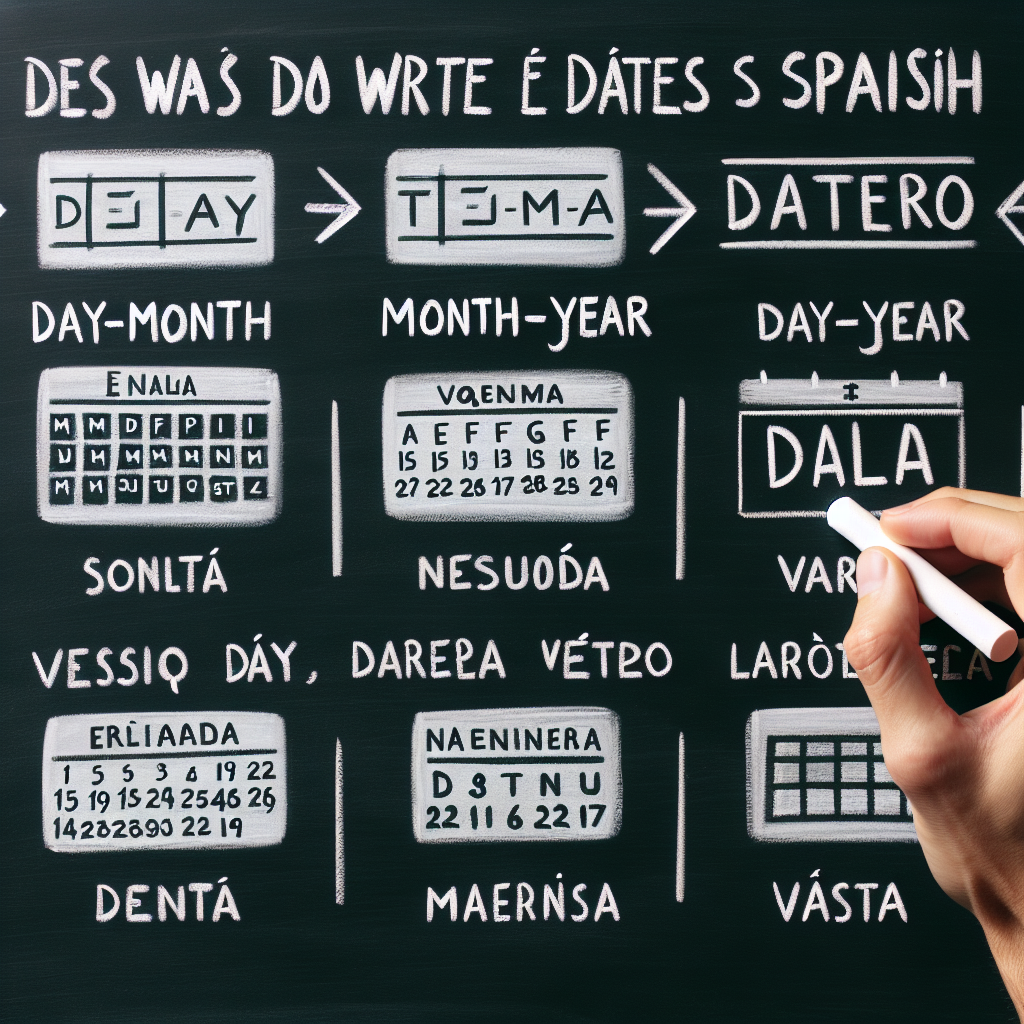 DES WAŚ DO WRTE É DÁTES S SPAISIH
DAY
T M-A
DATERO
DAY-MONTH
MONTH-YEAR
DAY-YEAR
ENALA
VQENMA
DALA
M M D F P I I
A E F F G F F
15 15 19 13 15 18 12
27 22 26 17 28 25 29
SONLTÁ
NESUODA
VAR
VESSIQ DÁY, DARELA VÉTRO
LARÒ
ERLIAADA
NAENINERA
1 5 5 3 6 19 22
D S T N U
15 19 15 24 25 46 26
22 11 6 22 17
14 28 28 90 22 19
DENTÁ
MAERNISA
VÁSTA